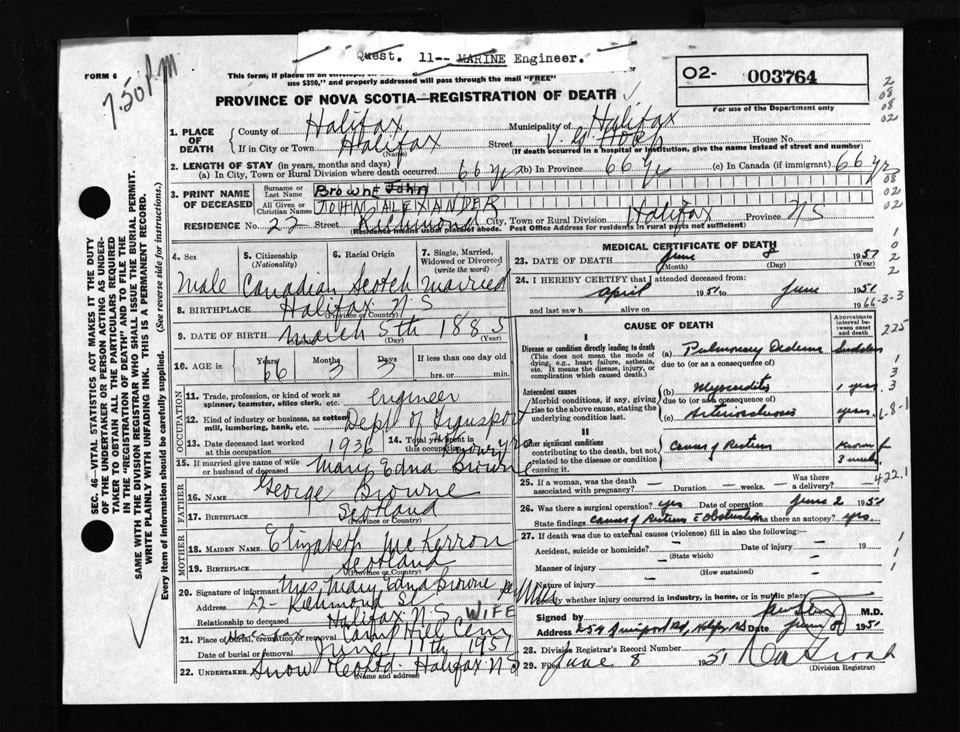 Quest. 11-- MARINE Engineer.
FORM 6
7.50 PM
This form, if placed in an envelope,
use $300," and properly addressed will pass through the mail "FREE"
02- 003764
For use of the Department only
PROVINCE OF NOVA SCOTIA—REGISTRATION OF DEATH
1. PLACE OF DEATH
County of Halifax Municipality of Halifax
If in City or Town Halifax Street V. G Hosp House No.
(Name) (If death occurred in a hospital or institution, give the name instead of street and number)
2. LENGTH OF STAY (in years, months and days)
(a) In City, Town or Rural Division where death occurred 66 yrs (b) In Province 66 yrs (c) In Canada (if immigrant) 66 yrs
3. PRINT NAME OF DECEASED
Surname or Last Name Browne John
All Given or Christian Names JOHN ALEXANDER
RESIDENCE No. 22 Street Richmond City, Town or Rural Division Halifax Province N S
(Residence means usual place of abode. Post Office Address for residents in rural parts not sufficient)
4. Sex Male
5. Citizenship (Nationality) Canadian
6. Racial Origin Scotch
7. Single, Married, Widowed or Divorced (write the word) Married
8. BIRTHPLACE Halifax N S
(Province or Country)
9. DATE OF BIRTH March 5th 1885
(Day) (Year)
10. AGE in Years 66 Months 3 Days 3 If less than one day old
hrs. or min.
OCCUPATION
11. Trade, profession, or kind of work as spinner, teamster, office clerk, etc. Engineer
12. Kind of industry or business, as cotton mill, lumbering, bank, etc. Dept of Transport
13. Date deceased last worked at this occupation 1936 14. Total years spent in this occupation
15. If married give name of wife or husband of deceased Mary Edna Browne
FATHER
16. NAME George Browne
17. BIRTHPLACE Scotland
(Province or Country)
MOTHER
18. MAIDEN NAME Elizabeth McKerron
19. BIRTHPLACE Scotland
(Province or Country)
20. Signature of informant Mrs Mary Edna Browne
Address 22 Richmond St
Halifax N.S
Relationship to deceased WIFE
21. Place of burial, cremation or removal Camp Hill Cemy
Date of burial or removal June 11th 1951
22. UNDERTAKER Snow Halifax N S
(Name and address)
MEDICAL CERTIFICATE OF DEATH
23. DATE OF DEATH June 8 1951
(Month) (Day) (Year)
24. I HEREBY CERTIFY that I attended deceased from:
April 1951 to June 1951
and last saw h alive on 19
CAUSE OF DEATH
Approximate interval between onset and death
I
Disease or condition directly leading to death (This does not mean the mode of dying, e.g., heart failure, asthenia, etc. It means the disease, injury, or complication which caused death.)
(a) Pulmonary Oedema Sudden
due to (or as a consequence of)
Antecedent causes
Morbid conditions, if any, giving rise to the above cause, stating the underlying condition last.
(b) Myocarditis 1 year
due to (or as a consequence of)
(c) Arteriosclerosis years
II
Other significant conditions contributing to the death, but not related to the disease or condition causing it.
Cancer of Rectum Known for 3 weeks
25. If a woman, was the death associated with pregnancy? — Duration — weeks. Was there a delivery? —
26. Was there a surgical operation? yes Date of operation June 2 1951
State findings Cancer of Rectum Obstruction Was there an autopsy? yes.
27. If death was due to external causes (violence) fill in also the following:
Accident, suicide or homicide? — Date of injury — 19
(State which)
Manner of injury —
(How sustained)
Nature of injury —
Specify whether injury occurred in industry, in home, or in public place
Signed by M.D.
Address 254 Date June 8 1951
28. Division Registrar's Record Number
29. Filed June 8 1951
(Division Registrar)
SEC. 46—VITAL STATISTICS ACT MAKES IT THE DUTY
OF THE UNDERTAKER OR PERSON ACTING AS UNDERTAKER TO OBTAIN ALL THE PARTICULARS REQUIRED
IN THE "REGISTRATION OF DEATH" AND TO FILE THE
SAME WITH THE DIVISION REGISTRAR WHO SHALL ISSUE THE BURIAL PERMIT.
WRITE PLAINLY WITH UNFADING INK. THIS IS A PERMANENT RECORD.
Every item of information should be carefully supplied. (See reverse side for instructions.)
2
08
08
02
08
02
02
1
0
2
2
66-3-3
225
1
3
3
6-8-1
422.1
1
1
1